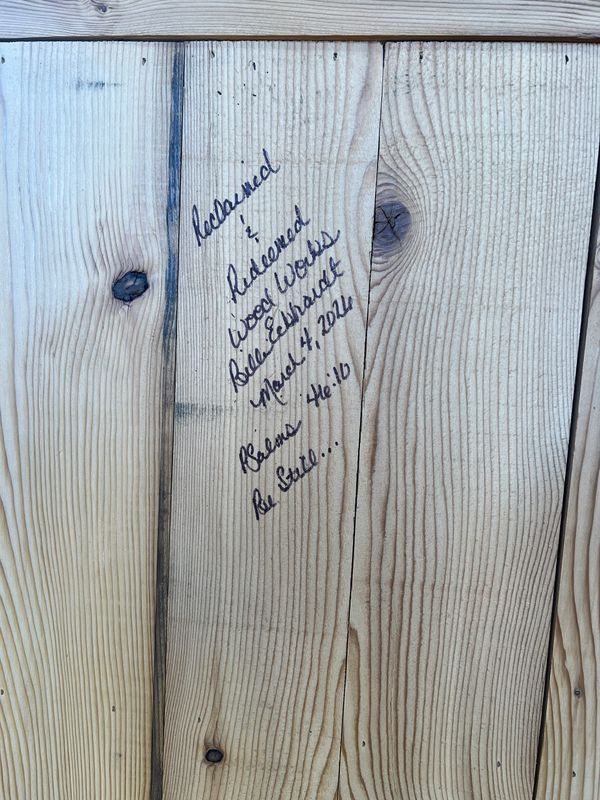 Reclaimed
&
Redeemed
Wood Works
Bill Eckhardt
March 4, 2026
Psalms 46:10
Be Still...